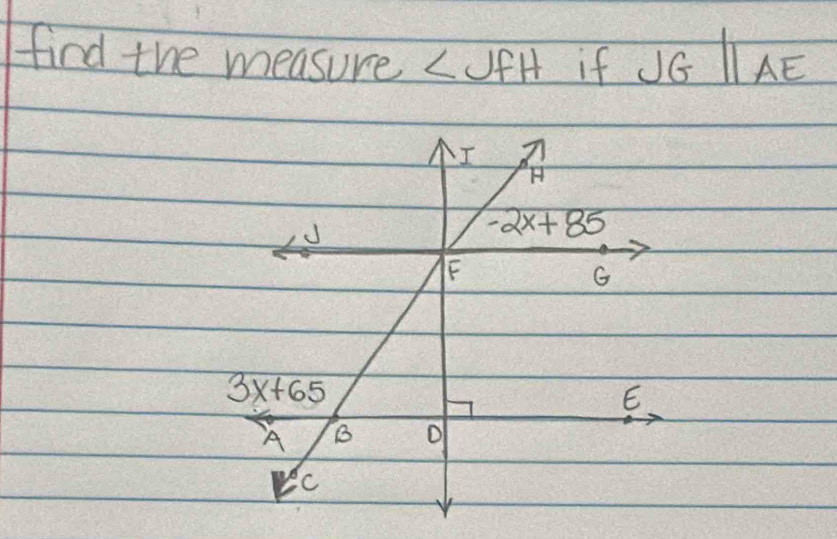 find the measure <JfH if JG || AE
I
H
-2x+85
J
F
G
3x+65
E
A
B
D
C